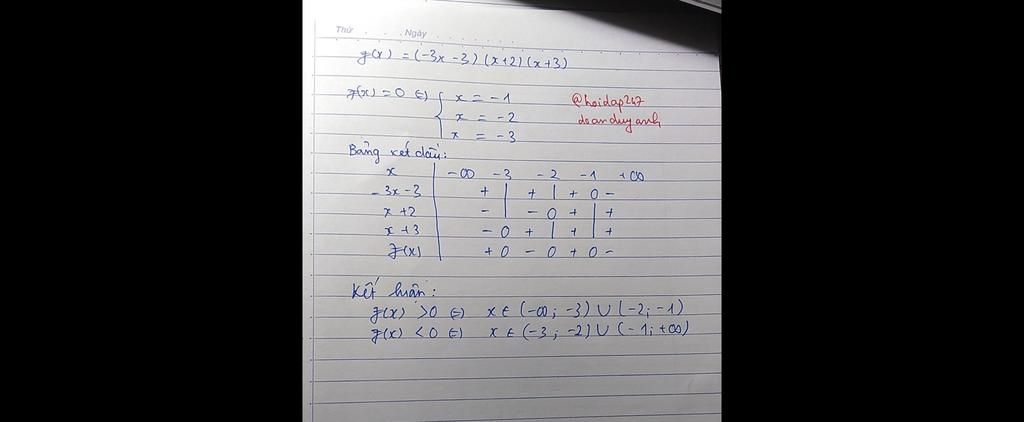 Thứ . . . . Ngày . . . . . . . .
f(x) = (-3x -3) (x+2) (x+3)
f(x) = 0 ⇔ { x = -1
x = -2
x = -3
@hoidap247
doanduyanh
Bảng xét dấu:
x | -∞ -3 -2 -1 +∞
-3x-3 | + | + | + 0 -
x+2 | - | - 0 + | +
x+3 | - 0 + | + | +
f(x) | + 0 - 0 + 0 -
Kết luận:
f(x) >0 ⇔ x ∈ (-∞; -3) ∪ (-2; -1)
f(x) <0 ⇔ x ∈ (-3; -2) ∪ (-1; +∞)